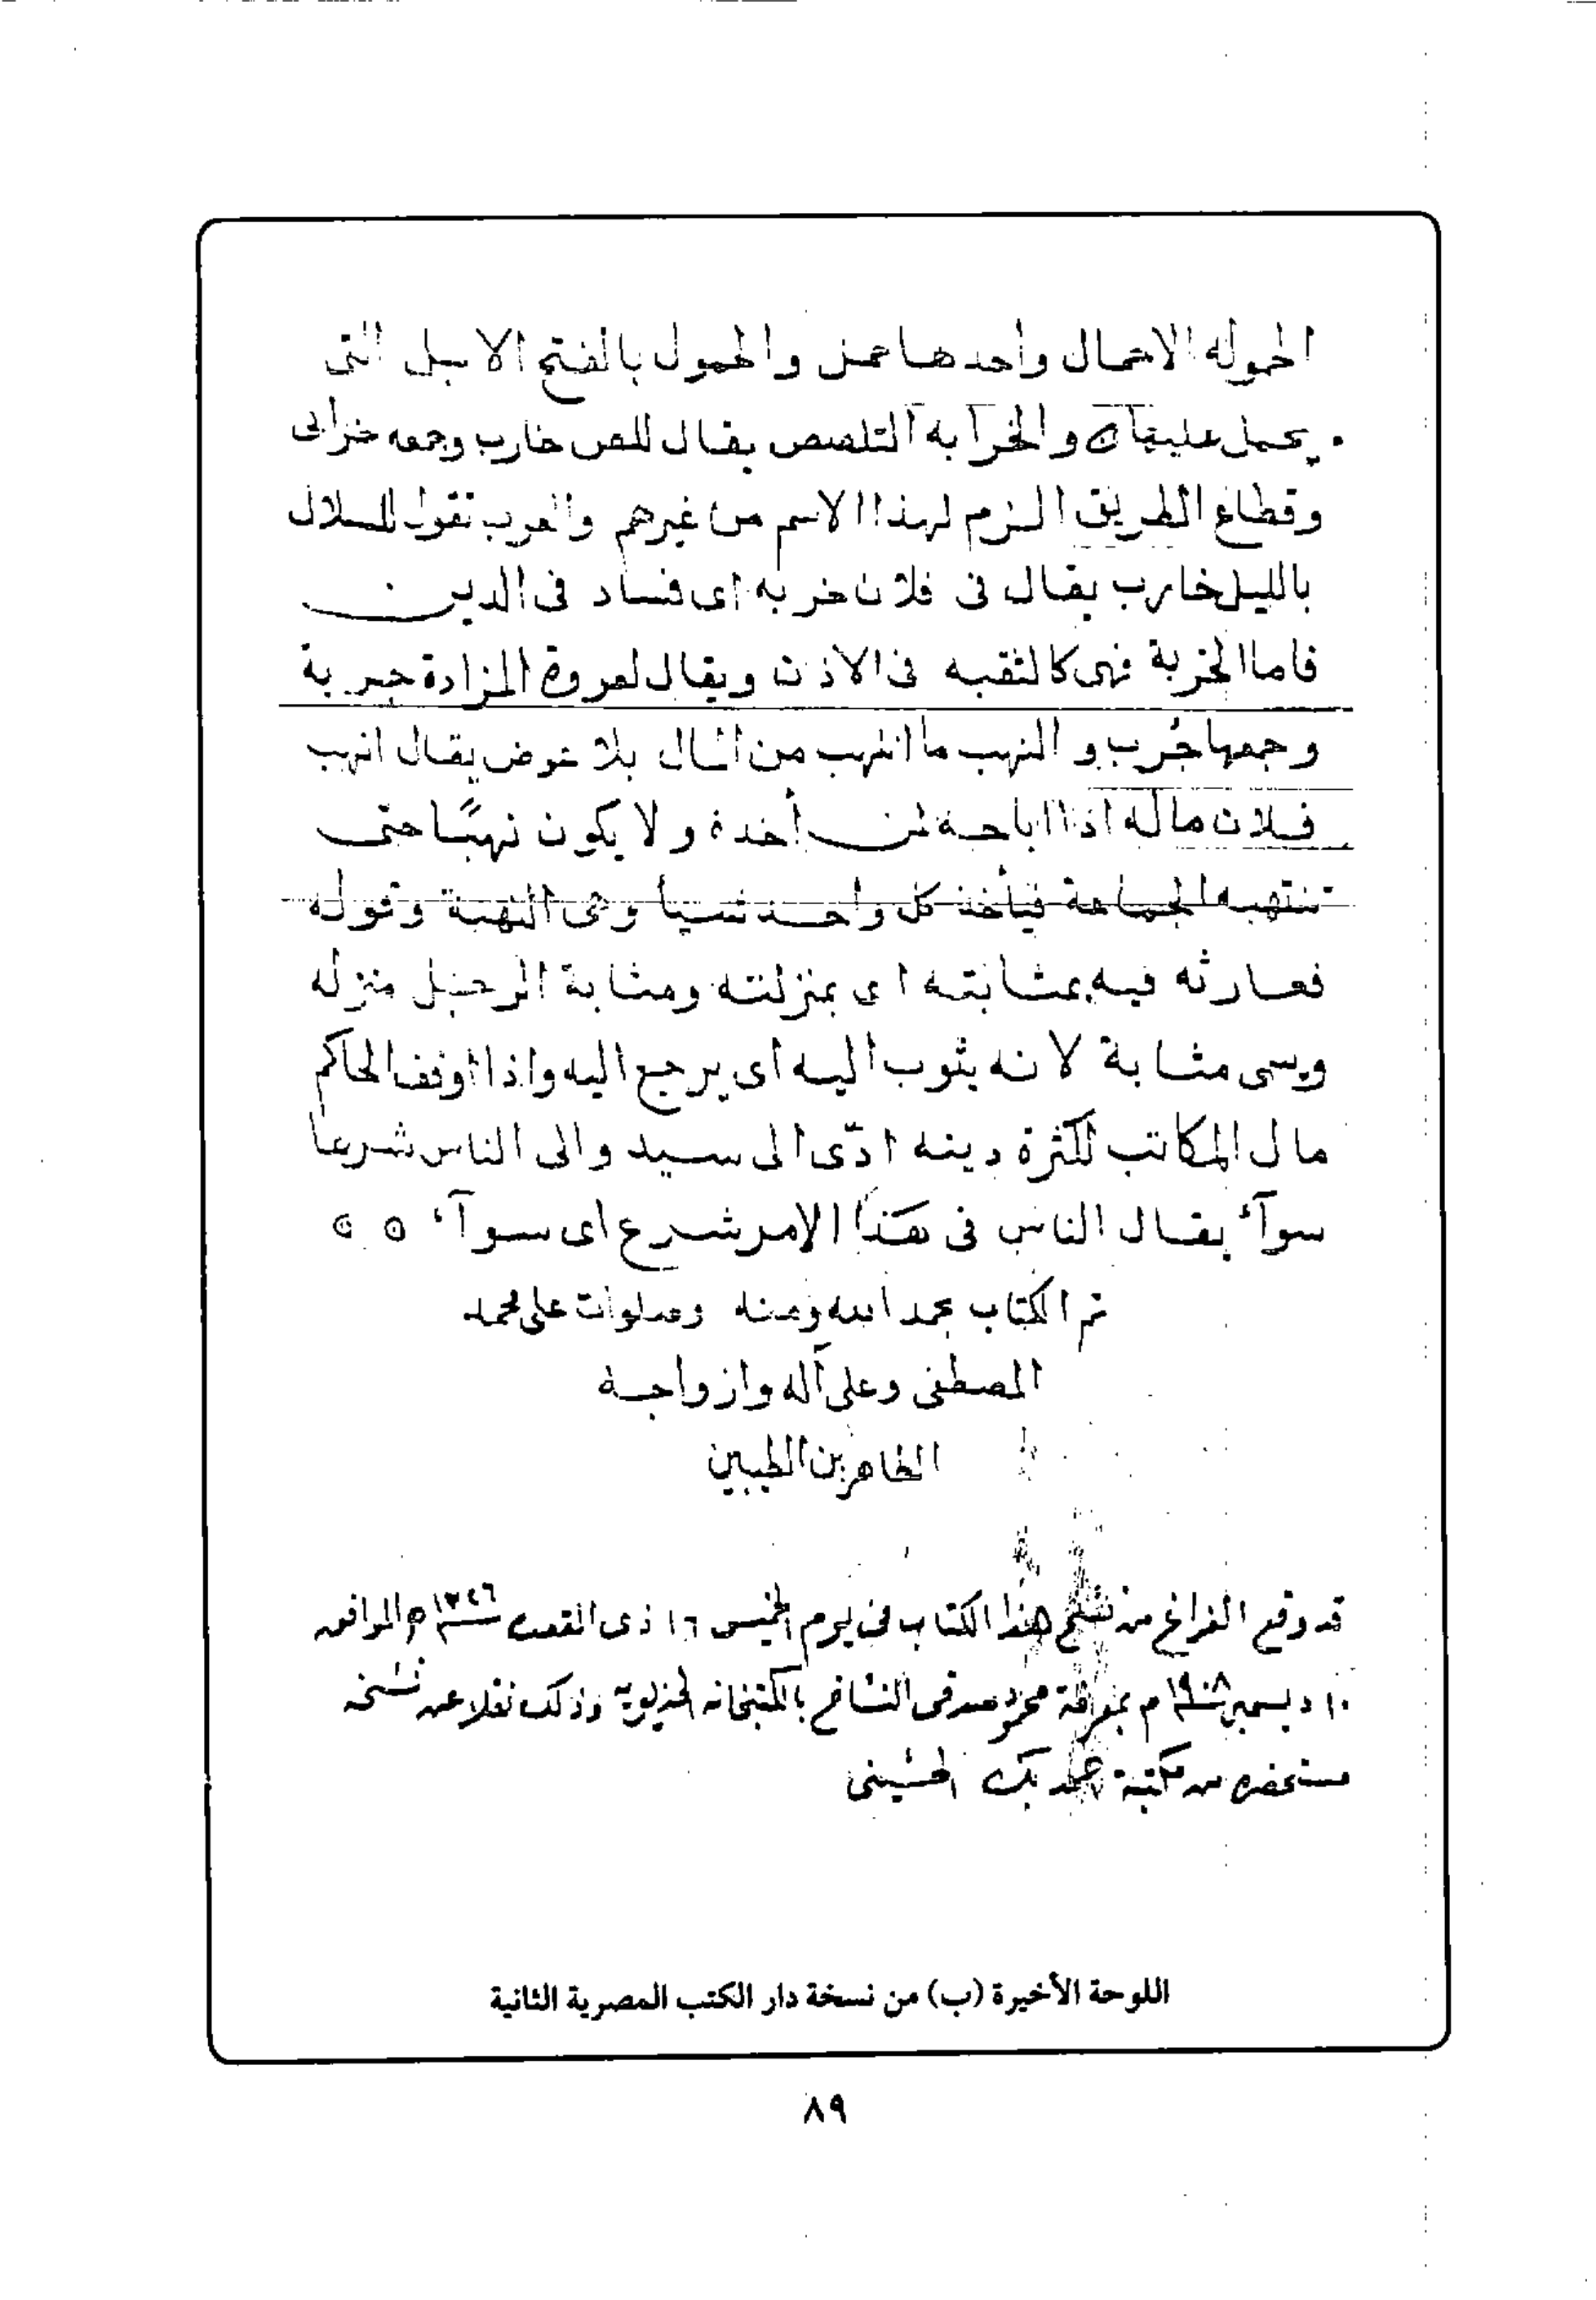 الحموله الاحمال واحدها حمل والحمول بالفتح الابل التى
يحمل عليها والخرابه التلصص يقال للص خارب وجمعه خراب
وقطاع الطريق الزم لهذا الاسم من غيرهم والعرب تقول للسلال
بالليل خارب يقال فى فلان خربه اى فساد فى الدين
فاما الخربة فهى كالثقبه فى الاذن ويقال لعروة المزادة خربة
وجمعها خُرب والنهب ما انتهب من المال بلا عوض يقال انهب
فلان ماله اذا اباحه لمن أخذه ولا يكون نهبًا حتى
تنتهبه الجماعة فيأخذ كل واحد شيأ وهى النهبة وقوله
فعارثه فيه بمثابته اى بمنزلته ومثابة الرجل منزله
ويسمى مثابة لانه يثوب اليه اى يرجع اليه واذا اوقف الحاكم
مال المكاتب لكثرة دينه ادّى الى سيده والى الناس شرعا
سوآء يقال الناس فى هذا الامر شرع اى سوآء ه ه
تم الكتاب بحمد الله ومنه وصلوات على محمد
المصطفى وعلى آله وازواجه
الطاهرين الطيبين
قد وقع الفراغ من نسخ هذا الكتاب فى يوم الخميس ١٦ ذى القعدة سنة ١٣٢٦ه الموافق
١٠ ديسمبر سنة ١٩٠٨م بمعرفة محمود صدقى النساخ بالكتبخانه الخديويه وذلك نقلا عن نسخه
مستحضره من مكتبة احمد بك الحسينى
اللوحة الأخيرة (ب) من نسخة دار الكتب المصرية الثانية
٨٩